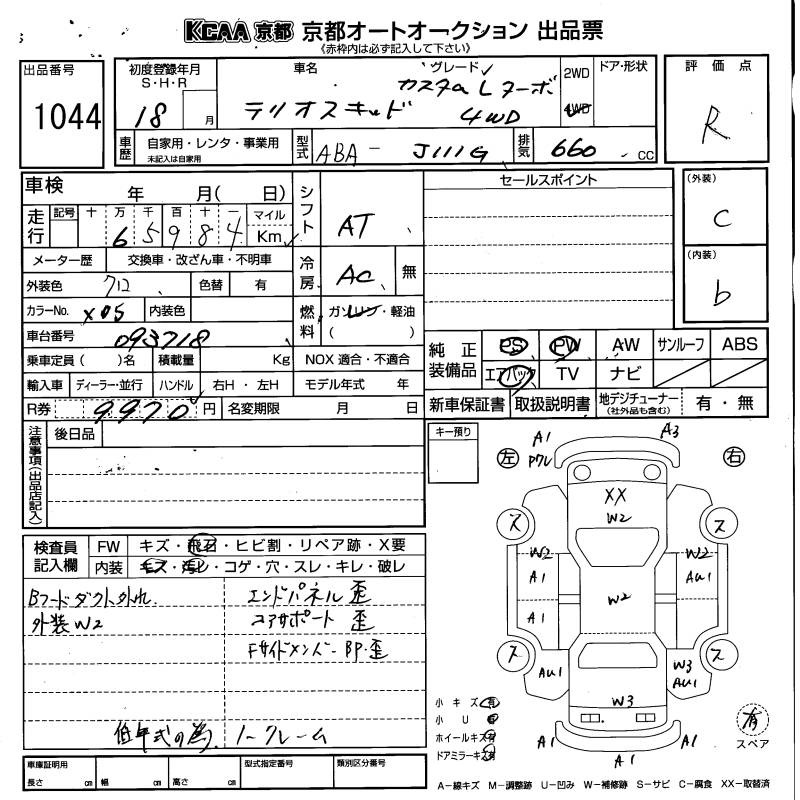 KCAA 京都 京都オートオークション 出品票
《赤枠内は必ず記入して下さい》
出品番号
1044
初度登録年月
S・H・R
18 月
車名
テリオスキッド
グレード
カスタムLターボ
4WD
2WD
4WD
ドア・形状
評価点
R
車歴
自家用・レンタ・事業用
未記入は自家用
型式
ABA - J111G
排気
660 CC
車検 年 月( 日)
シフト
AT
セールスポイント
(外装)
C
走行
記号 十 万 千 百 十 一 マイル
6 5 9 8 4 Km
メーター歴 交換車・改ざん車・不明車
冷房
AC
無
(内装)
b
外装色 クロ 色替 有
カラーNo. X05 内装色
燃料
ガソリン・軽油
( )
車台番号 093718
純正装備品
PS PW AW サンルーフ ABS
エアバック TV ナビ
乗車定員( )名 積載量 Kg NOX 適合・不適合
輸入車 ディーラー・並行 ハンドル 右H・左H モデル年式 年
新車保証書 取扱説明書 地デジチューナー
(社外品も含む)
有・無
R券 9970円 名変期限 月 日
注意事項(出品店記入)
後日品
キー預り
左
右
A1
A3
Pワレ
XX
W2
ス
ス
W2
W2
A1
AW1
W2
A1
ス
ス
AU1
W3
AU1
W3
A1
A1
A1
検査員記入欄
FW キズ・飛石・ヒビ割・リペア跡・X要
内装 キズ・汚レ・コゲ・穴・スレ・キレ・破レ
Bフードダクト外れ エンドパネル歪
外装W2 コアサポート歪
FサイドメンバーBP・歪
低年式の為 ノークレーム
小キズ 有
小U 有
ホイールキズ 有
ドアミラーキズ 有
有
スペア
車庫証明用
長さ cm 幅 cm 高さ cm
型式指定番号
類別区分番号
A-線キズ M-調整跡 U-凹み W-補修跡 S-サビ C-腐食 XX-取替済